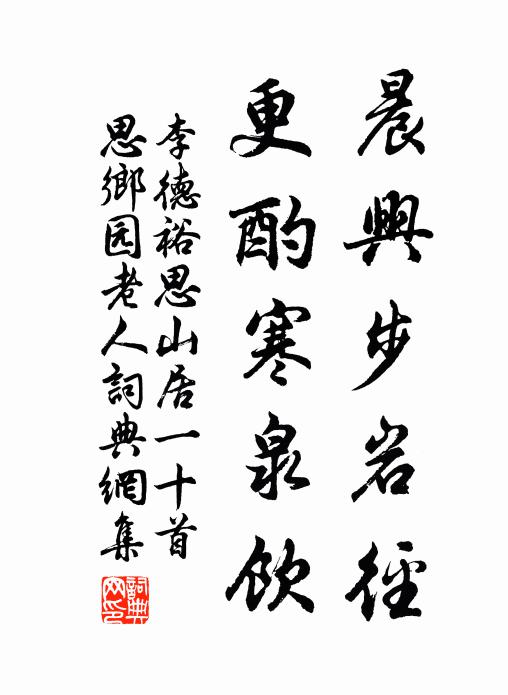 晨興步岩徑
更酌寒泉飲
李德裕思山居一十首
思鄉园老人詞典網集
詞典网印